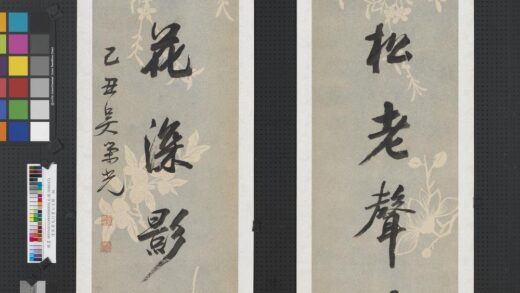 松老聲
花深影
己丑吳榮光